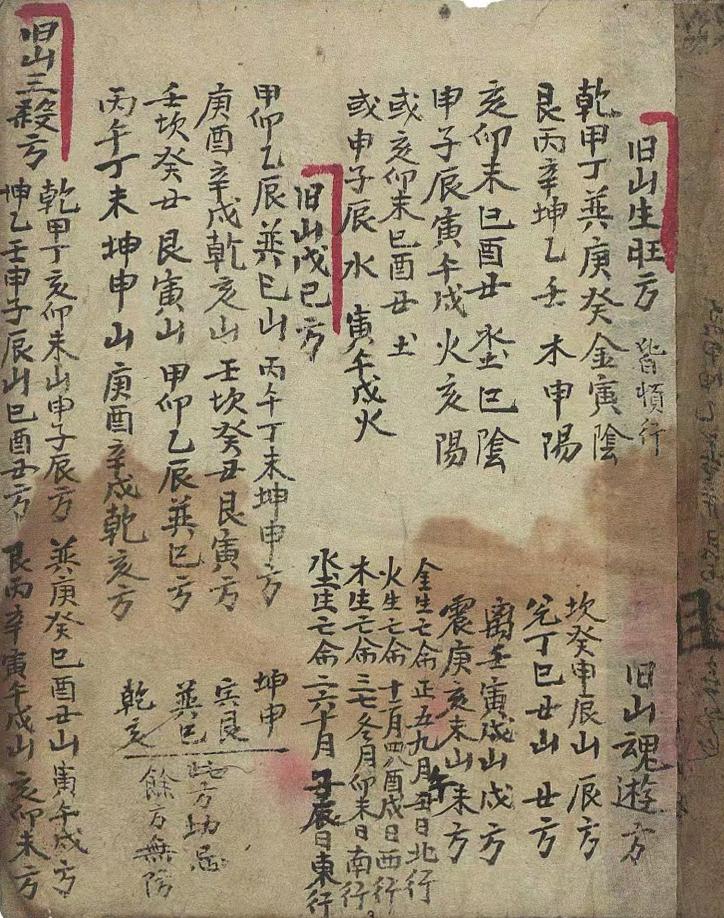 旧山生旺方 皆慎行
乾甲丁巽庚癸金寅陰
艮丙辛坤乙壬木申陽
亥卯未巳酉丑 水土 巳陰
申子辰寅午戌火亥陽
或亥卯未巳酉丑土
或申子辰水 寅午戌火
旧山魂遊方
坎癸申辰山辰方
兌丁巳丑山丑方
離壬寅戌山戌方
震庚亥未山未方
金生亡命正五九月丑日北行
火生亡命十二月四八酉戌日西行
木生亡命三七冬月卯未日南行
水土生亡命二六十月子辰日東行
旧山戊己方
甲卯乙辰巽巳山丙午丁未坤申方
庚酉辛戌乾亥山壬坎癸丑艮寅方
壬坎癸丑艮寅山甲卯乙辰巽巳方
丙午丁未坤申山庚酉辛戌乾亥方
坤申
寅艮
巽巳
乾亥
此方切忌
餘方無防
旧山三殺方
乾甲丁亥卯未山申子辰方 巽庚癸巳酉丑山寅午戌方
坤乙壬申子辰山巳酉丑方 艮丙辛寅午戌山亥卯未方